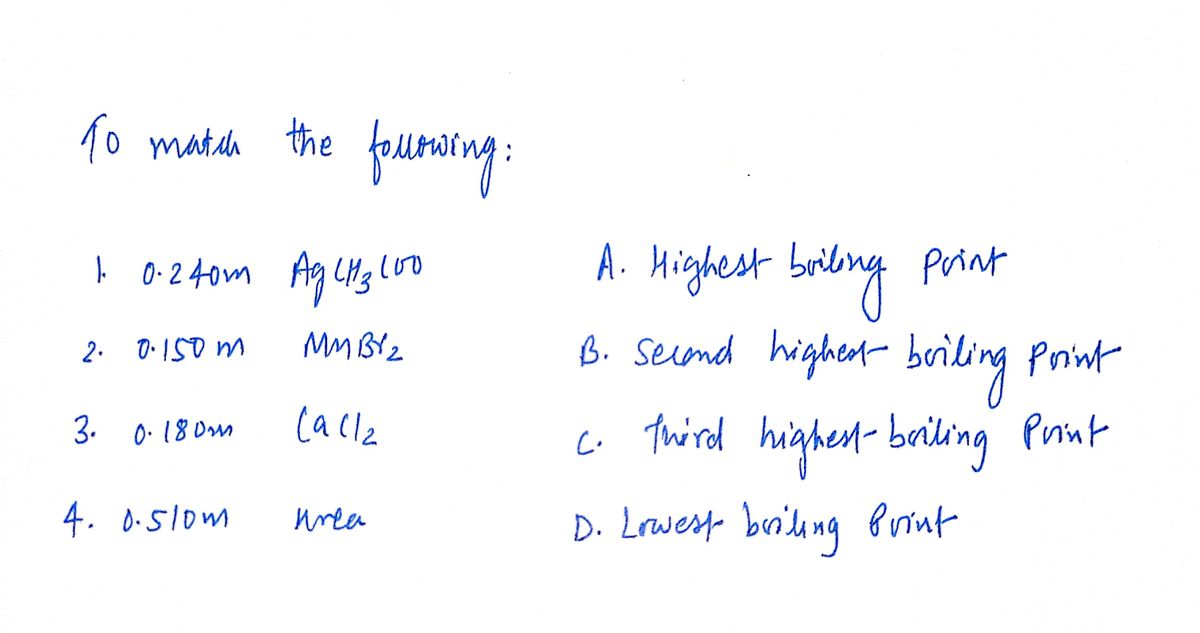 To match the following:
1. 0.240m AgCH3COO A. Highest boiling point
2. 0.150 m MnBr2 B. Second highest boiling point
3. 0.180m CaCl2 C. Third highest boiling Point
4. 0.510m Urea D. Lowest boiling Point